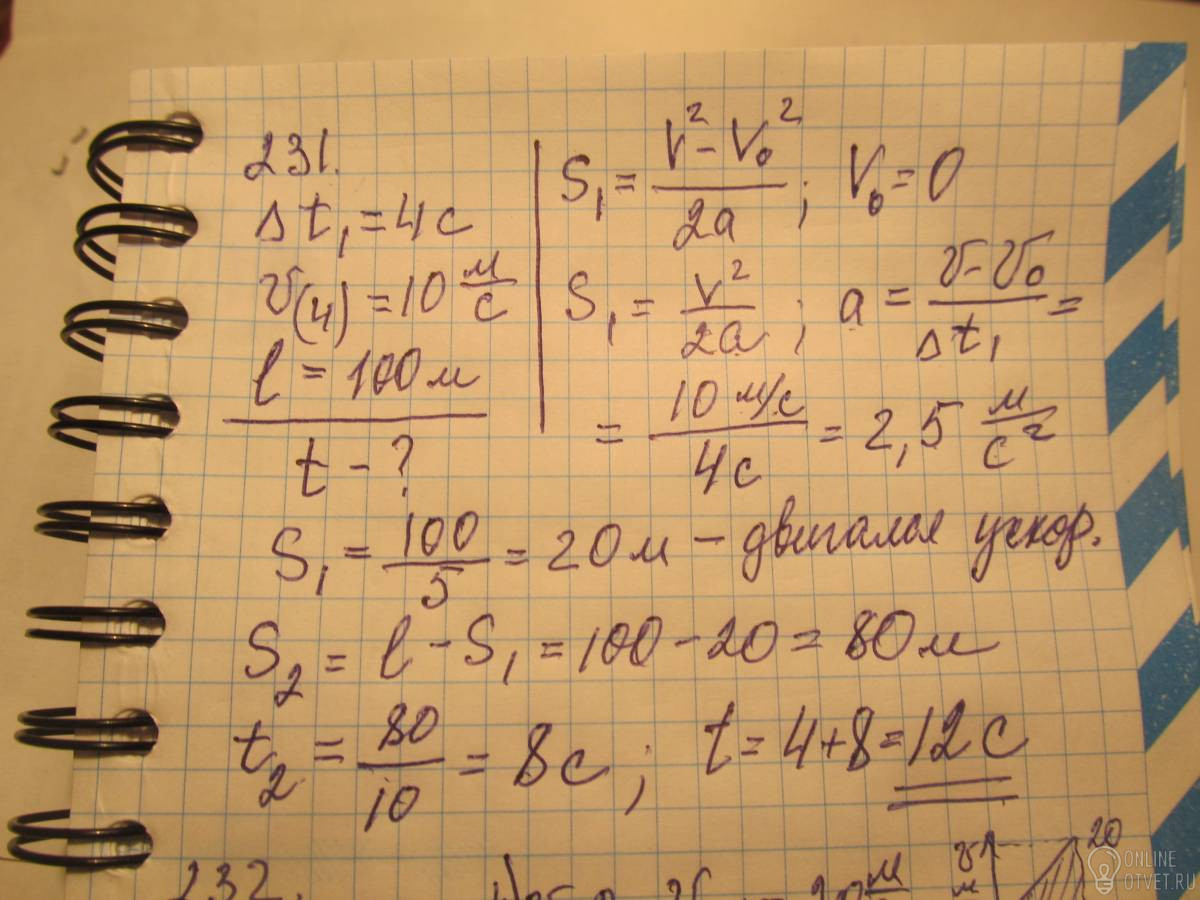 231.
Δt₁ = 4с
v(4) = 10 м/с
l = 100 м
t - ?
S₁ = (V² - V₀²)/2a ; V₀ = 0
S₁ = V²/2a ; a = (v - v₀)/Δt₁ =
= 10 м/с / 4с = 2,5 м/с²
S₁ = 100/5 = 20 м – двигался ускор.
S₂ = l - S₁ = 100 - 20 = 80 м
t₂ = 80/10 = 8с ; t = 4+8 = 12с
232.
20
ONLINE
OTVET.RU